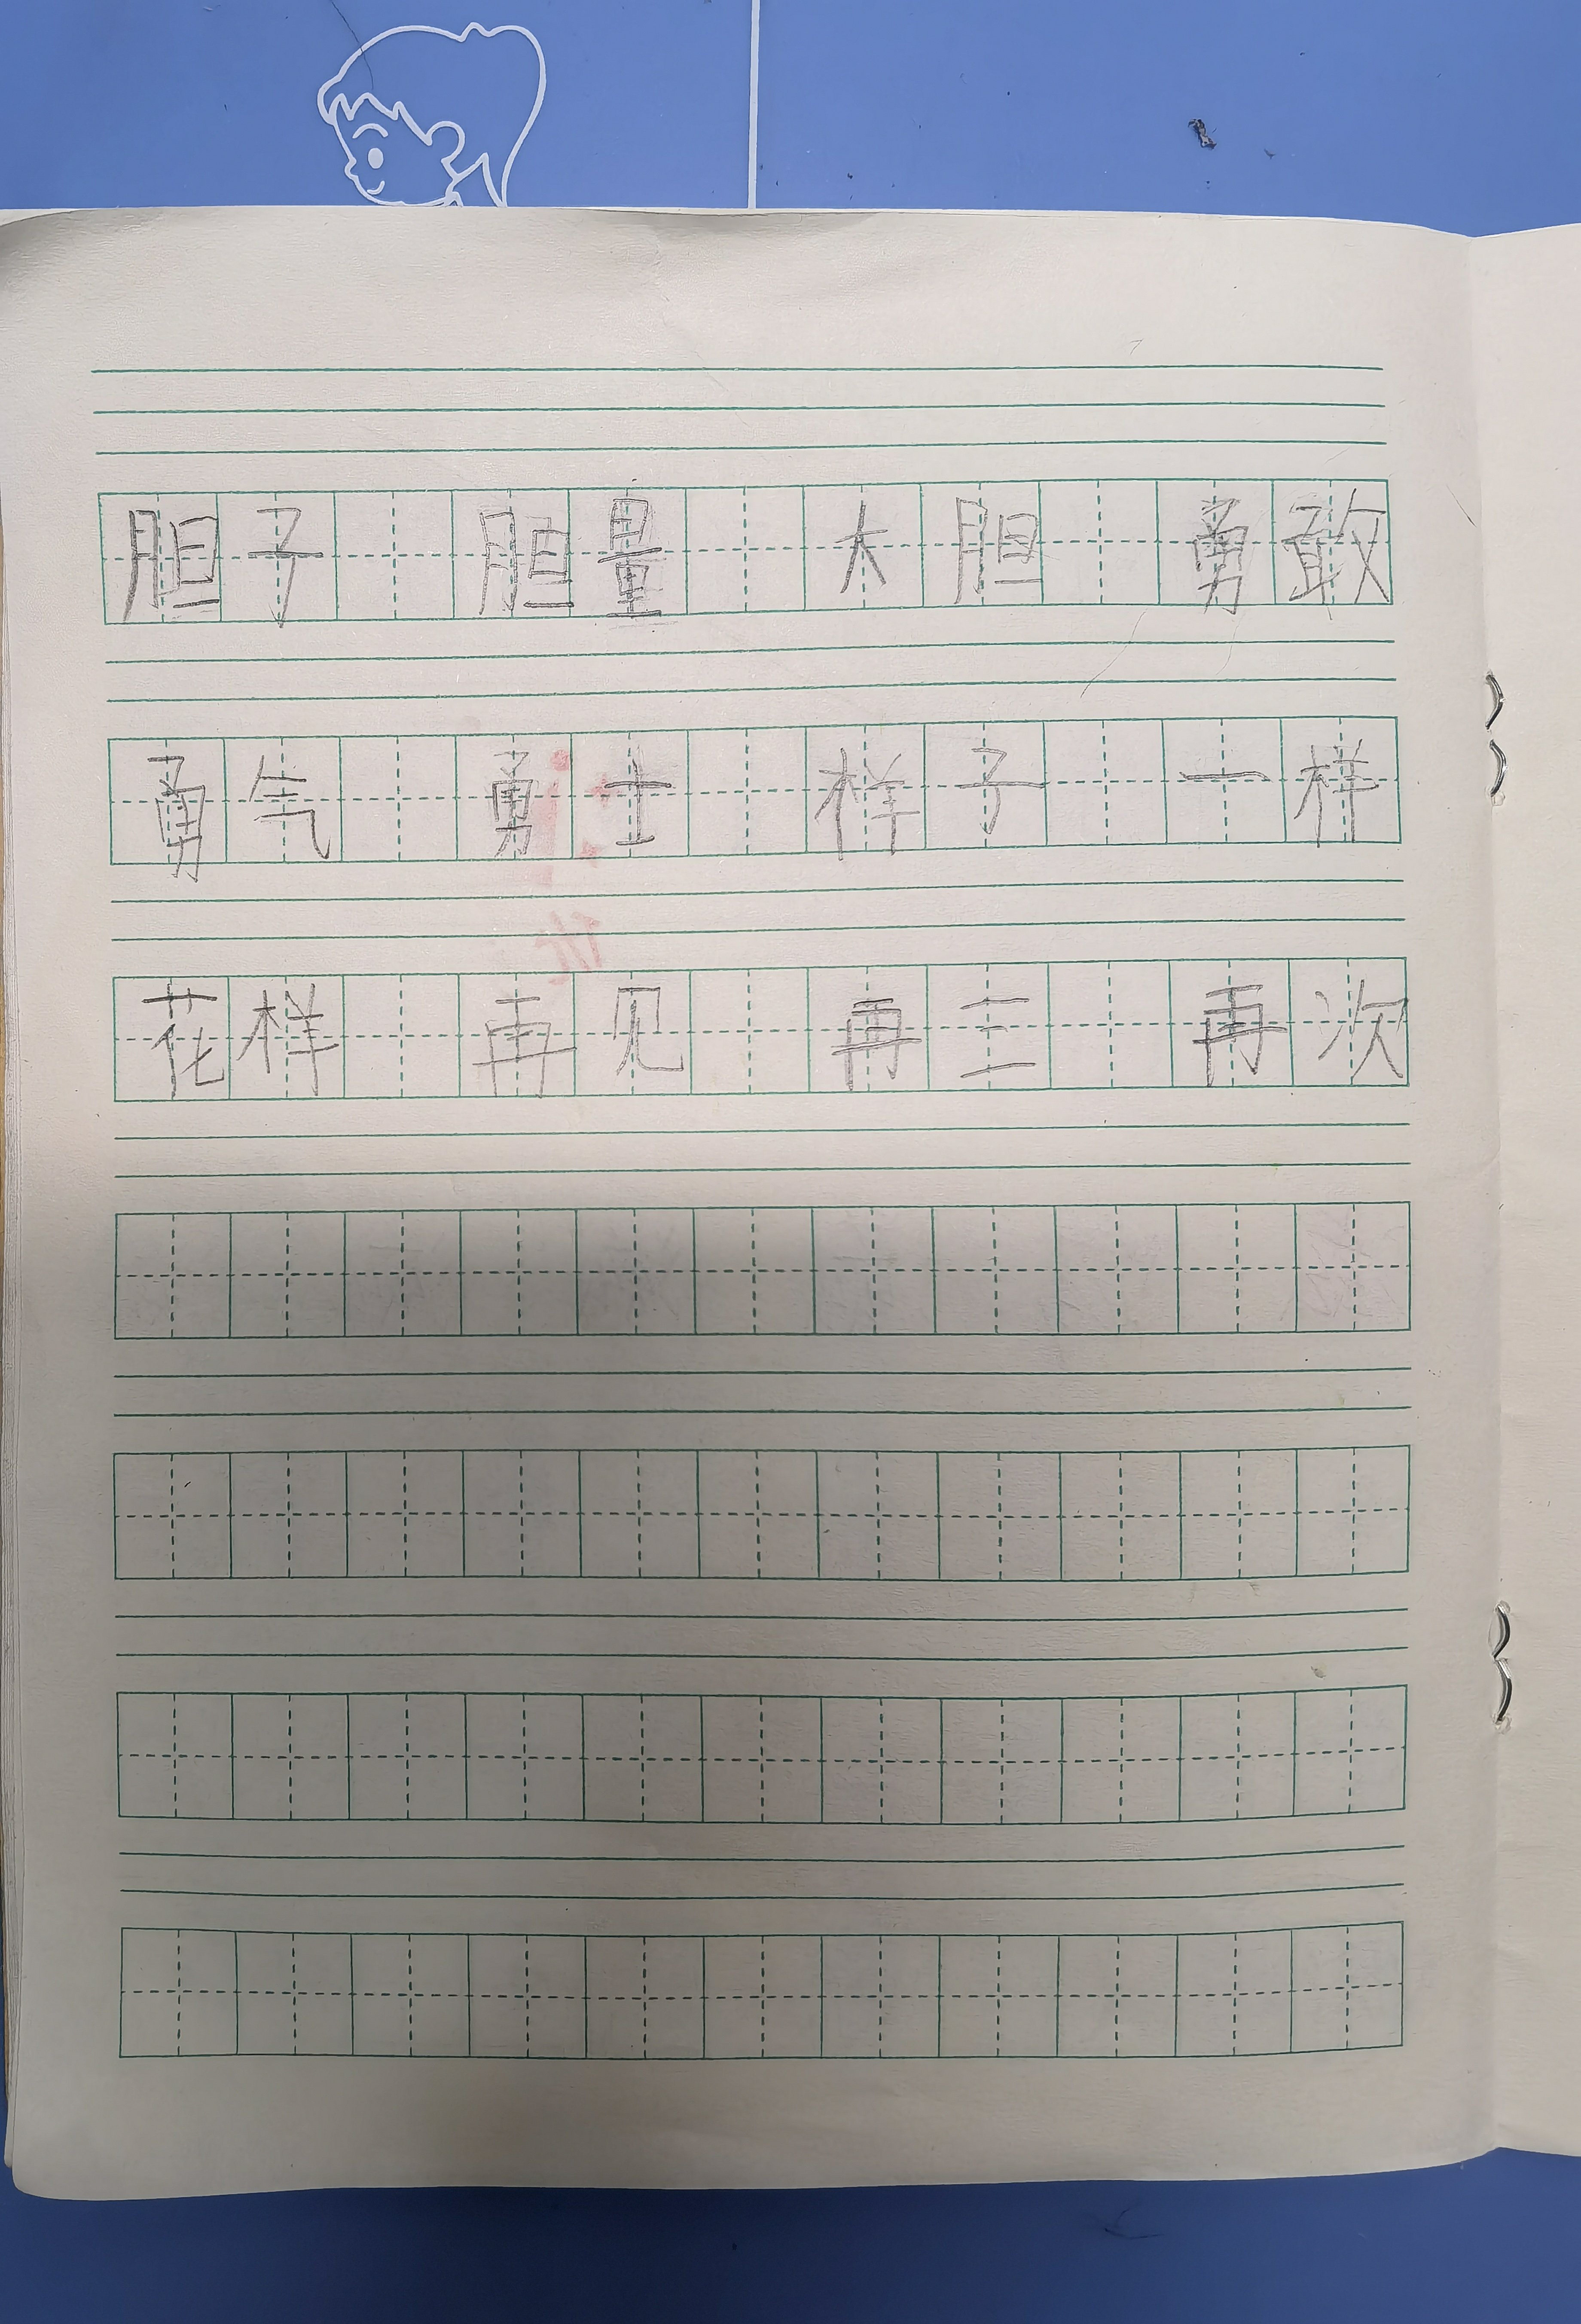 胆子 胆量 大胆 勇敢
勇气 勇士 样子 一样
花样 再见 再三 再次